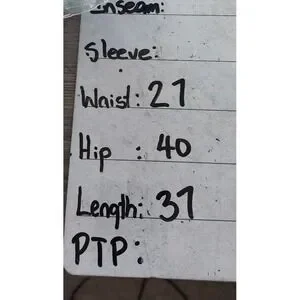 Inseam:
Sleeve:
Waist: 27
Hip : 40
Length: 37
PTP: